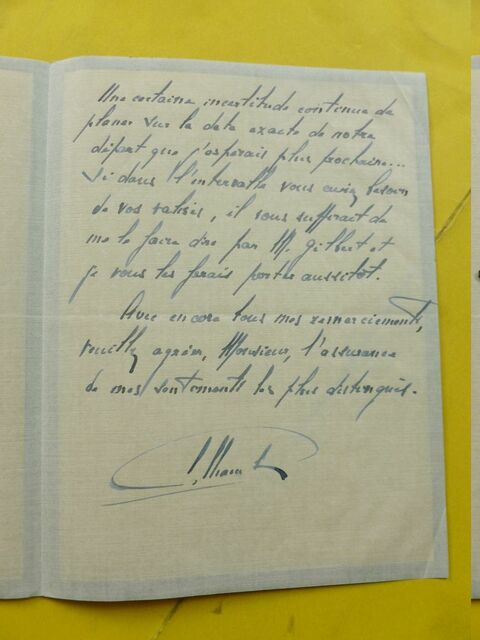 Une certaine incertitude continue de
planer sur la date exacte de notre
départ que j'espérais plus prochaine...
Si dans l'intervalle vous aviez besoin
de vos valises, il vous suffirait de
me le faire dire par M. Gilbert et
je vous les ferais porter aussitôt.
Avec encore tous mes remerciements,
veuillez agréer, Monsieur, l'assurance
de mes sentiments les plus distingués.